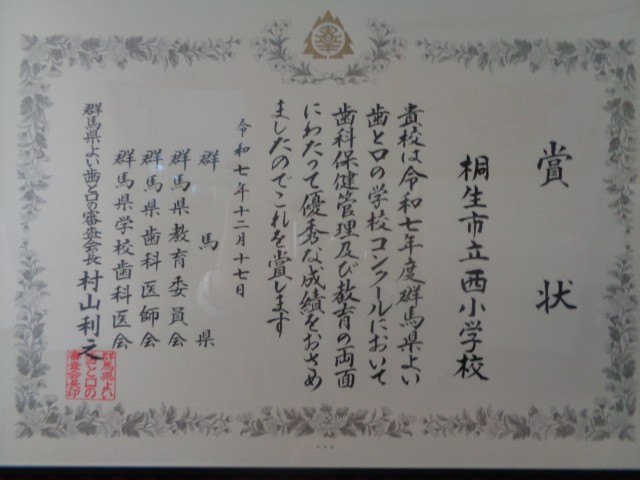 賞状
桐生市立西小学校
貴校は令和七年度群馬県よい
歯と口の学校コンクールにおいて
歯科保健管理及び教育の両面
にわたって優秀な成績をおさめ
ましたのでこれを賞します
令和七年十二月十七日
群馬県
群馬県教育委員会
群馬県歯科医師会
群馬県学校歯科医会
群馬県よい歯と口の審査会長 村山利之
群馬県よい
歯と口の
審査会長印